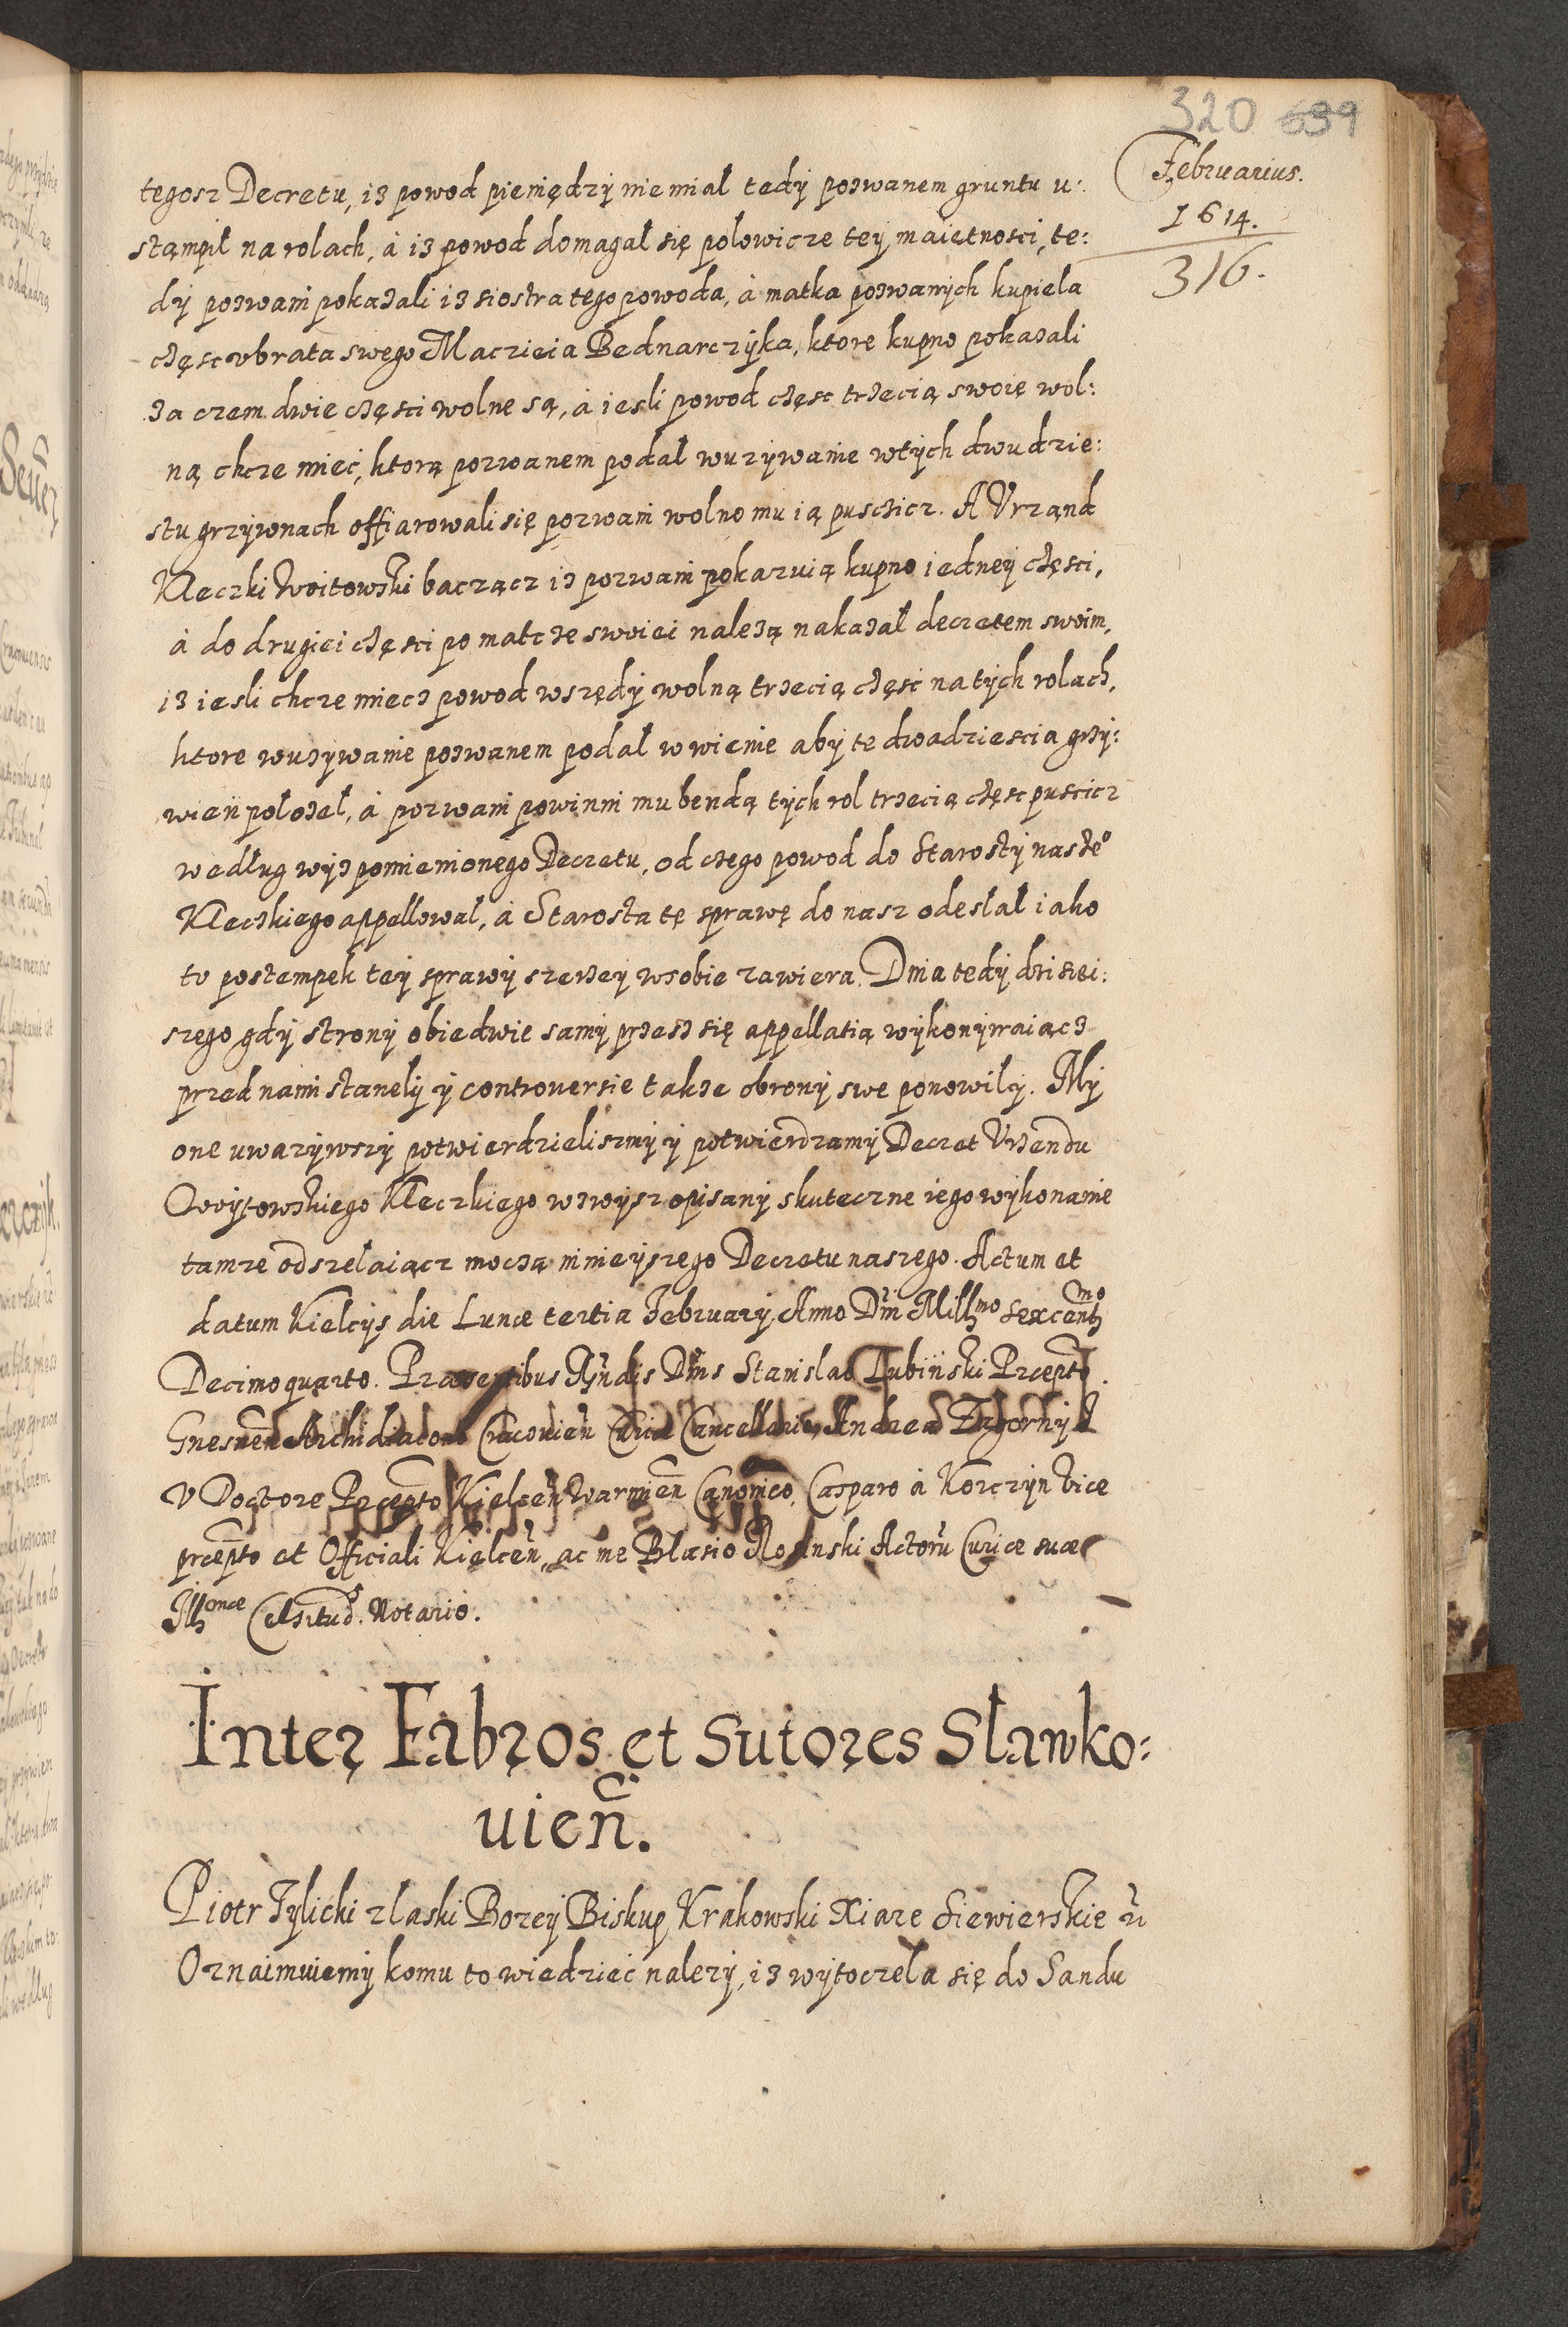 320 639
Februarius.
1614.
316.
tegosz Decretu, iz powod pieniędzy nie miał tedy pozwanem gruntu u:
stąmpił na rolach, á iz powod domagał się połowicze tey maiętnosci, te:
dy pozwani pokazali iz siostra tego powoda, á matka pozwanych kupieła
częsc v brata swego Maczieia Bednarczyka, ktore kupno pokazali
za czem dwie częsci wolne są, á iesli powod częsc trzecią swoię wol:
ną chcze mieć, ktorą pozwanem podał w uzywanie w tych dwudzie:
stu grzywnach offiarowali się pozwani wolno mu ią pusczicz. A Vrząnd
Kleczki Woitowski bacząncz iz pozwani pokazuią kupno iedney częsci,
á do drugiei częsci po matcze swoiei należą nakazał decretem swoim,
iz iesli chcze miecz powod wszędy wolną trzecią częsć na tych rolach,
ktore w uzywanie pozwanem podał w wienie aby te dwadziescia grzy:
wień położeł, á pozwani powinni mu bendą tych rol trzecią częsc puscicz
według wyz pomienionego Decretu, od czego powod do Starosty naszeo
Kleczkiego appellował, á Starosta tę sprawę do nasz odesłał iako
to postempek tey sprawy szerzey w sobie zawiera. Dnia tedy dzisiei:
szego gdy strony obiedwie samy przesz się appellatią wykonywaiącz
przed nami stanely y controuersie takze obrony swe ponowiły. My
one uwazywszy potwierdzielismy y potwierdzamy Decret Vrzendu
Woytowskiego Kleczkiego wzwysz opisany skuteczne iego wykonanie
tamze odszełaiącz moczą ninieyszego Decretu naszego. Actum et
datum Kielcys die Lunæ tertia February Anno Dni Millmo sexcentmo
Decimo quarto. Præsentibus Rndis Dnis Stanislao Łubiński Præpto
Gnesnen Archidiacono Cracouien Curiæ Cancellario, Andrea Zagorny I
V Doctore Præpto Kielcen Warmien Canonico, Casparo á Korczyn Vice
præpto et Officiali Kielcen, ac me Blasio Rosinski Actoru Curiæ suæ
Illonæ Celsitud. Notario.
Inter Fabros et Sutores Sławko:
uien.
Piotr Tylicki z laski Bozey Biskup Krakowski Xiaze Siewierskie zc
Oznaimuiemy komu to wiedzieć nalezy, iz wytoczeła się do Sandu